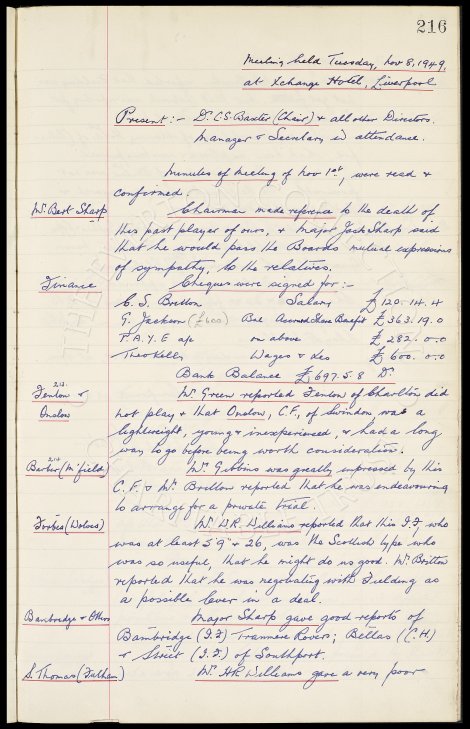 216
Meeting held Tuesday, Nov 8, 1949.
at Xchange Hotel, Liverpool
Present :- Dr. C.S. Baxter (Chair) & all other Directors.
Manager & Secretary in attendance.
Minutes of meeting of Nov 1st, were read &
confirmed.
Mr. Bert Sharp
Chairman made reference to the death of
this past player of ours, & Major Jack Sharp said
that he would pass the Boards mutual expressions
of sympathy, to the relatives.
Finance
Cheques were signed for :-
C. S. Britton Salary £120. 14. 4
G. Jackson (£600) Bal Accrued Share Benefit £363. 19. 0
P. A. Y. E a/c on above £282. 0. 0
Theo Kelly Wages & Exs £600. 0. 0
Bank Balance £697. 5. 8 Dr
213.
Fenton &
Onslow
Mr. Green reported Fenton of Charlton did
not play & that Onslow, C.F., of Swindon, was a
lightweight, young & inexperienced, & had a long
way to go before being worth consideration.
214
Barber (M'field)
Mr. Gibbins was greatly impressed by this
C.F. & Mr. Britton reported that he was endeavouring
to arrange for a private trial.
Forbes (Wolves)
Mr. W.R. Williams reported that this I.F, who
was at least 5'9" & 26, was the Scottish type who
was so useful, that he might do us good. Mr. Britton
reported that he was negotiating with Fielding as
a possible lever in a deal.
Bambridge & Others
Major Sharp gave good reports of
Bambridge (I.F) Tranmere Rovers; Bellas (C.H)
& Street (I.F.) of Southport.
S. Thomas (Fulham)
Mr. H.R. Williams gave a very poor